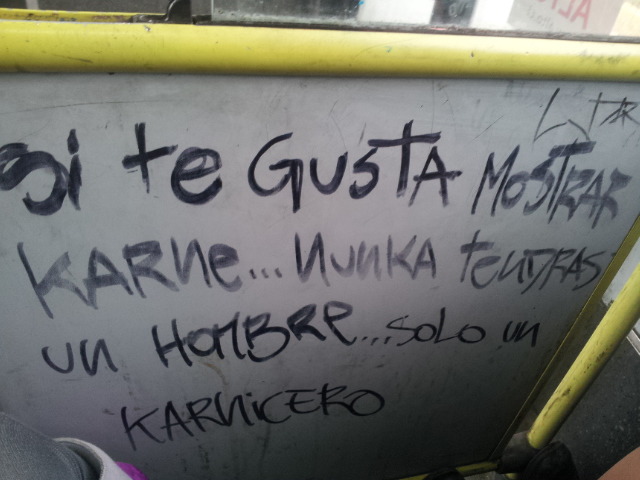 Si te GUSTA MOSTRAR
KARNe... NUNKA teNDRAS
UN HOMBRE... SOLO UN
KARNiCERO